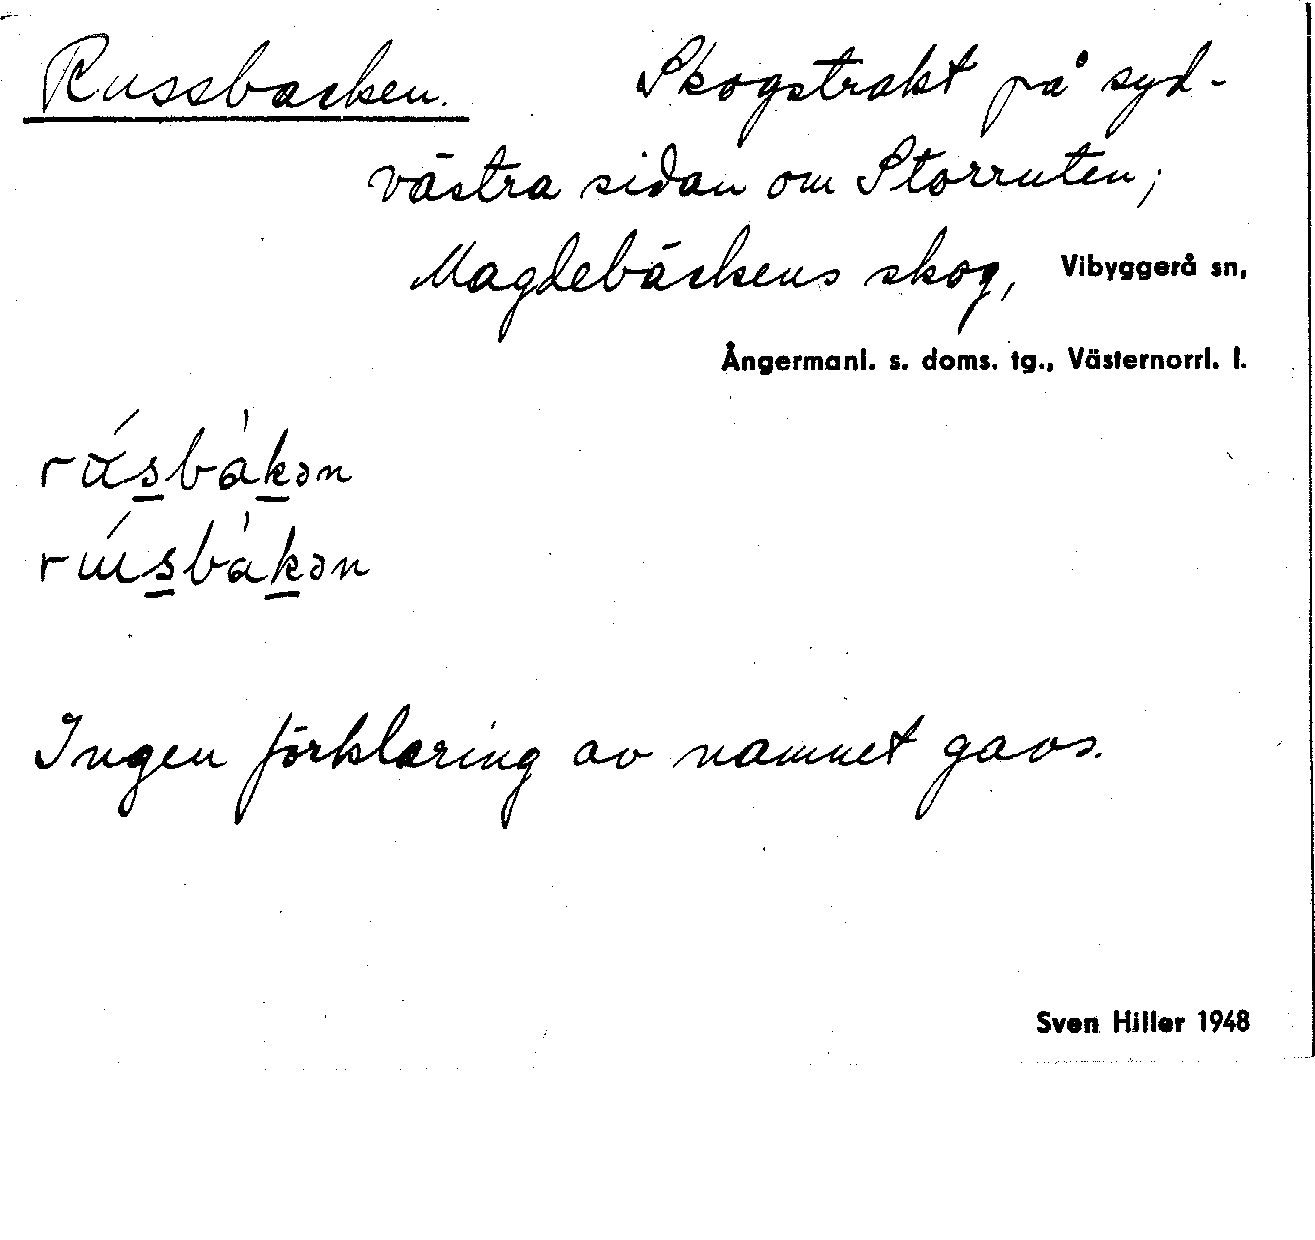 Russbacken. Skogstrakt på syd-
västra sidan om Storruten;
Magdebäckens skog, Vibyggerå sn,
Ångermanl. s. doms. tg., Västernorrl. l.
Ingen förklaring av namnet gavs.
Sven Hiller 1948